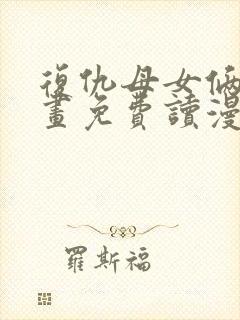 復仇母女倆漫
畫免費讀漫
羅斯福